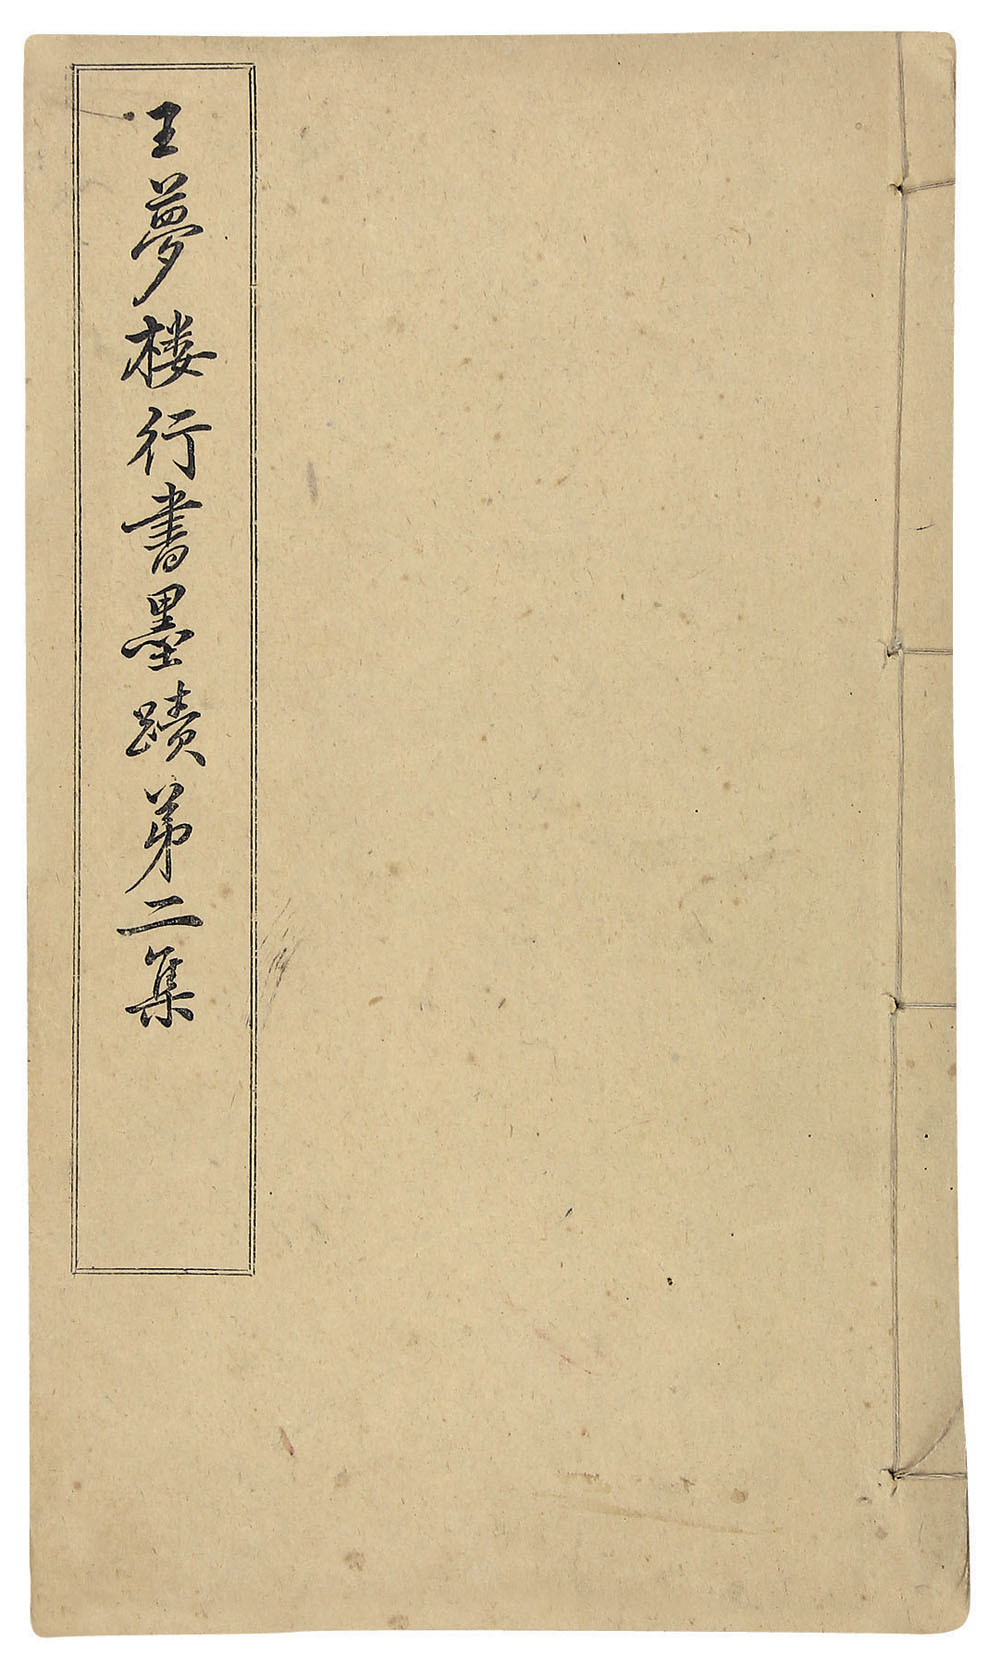 王夢楼行書墨蹟第二集